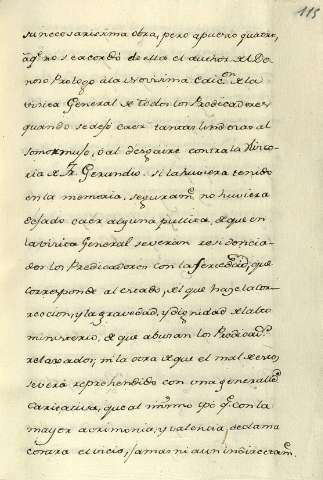 115
su necesarissima obra, pero apuesto quatro,
à q.e no se acordó de ella el author del Do-
noso Prologo à la Novissima Edic.on de la
Critica General de todos los Predicadores
quando se dejo caer tantas lindezas al
somormujo, ò al desgaire contra la Histo-
ria de Fr. Gerundio. si la huviera tenido
en la memoria, seguram.te no huviera
dejado caer alguna pullita, de que en
la Critica General se verán residencia-
dos los Predicadores con la seriedad, que
corresponde al estado, del que haze la cor-
reccion, y la gravedad, y dignidad del alto
ministerio, de que abusan los Predicad.s
relaxados; ni la otra de que el mal de esto,
se verá reprehendido con una general
caricatura, que al mismo tpô q.e con la
mayor acrimonia, y valentia, declama
contra el vicio, jamas ni aun indirectam.te